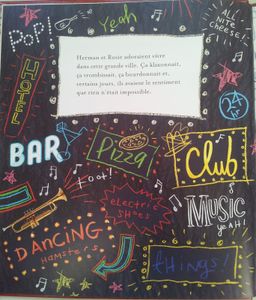 Pop!
Yeah
ALL
NITE
CHEESE!
HOTEL
Herman et Rosie adoraient vivre
dans cette grande ville. Ça klaxonnait,
ça trombinait, ça bourdonnait et,
certains jours, ils avaient le sentiment
que rien n'était impossible.
24
hr
BAR
Pizza
Club
Toot!
electric
SHOES
&
MUSIC
yeah!
DANCING
Hamsters
things!